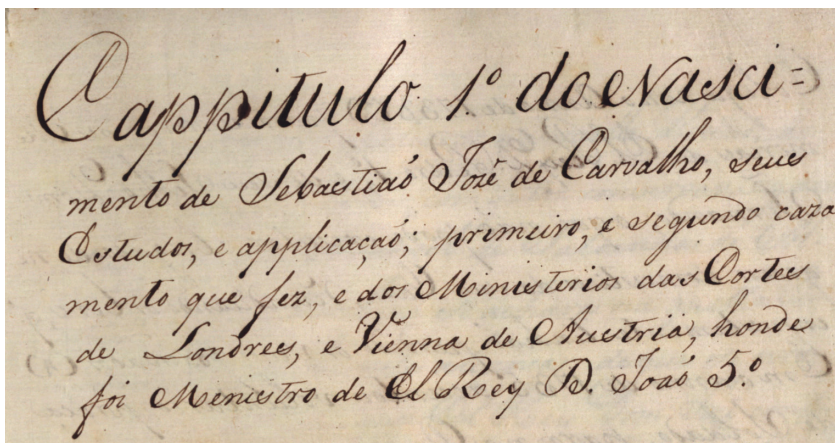 Cappitulo 1º do Nasci=
mento de Sebastiaõ Jozê de Carvalho, seus
Estudos, e applicaçaõ; primeiro, e segundo caza
mento que fez, e dos Ministerios das Cortes
de Londres, e Vienna de Austria, honde
foi Menistro de El Rey D. Joaõ 5.º